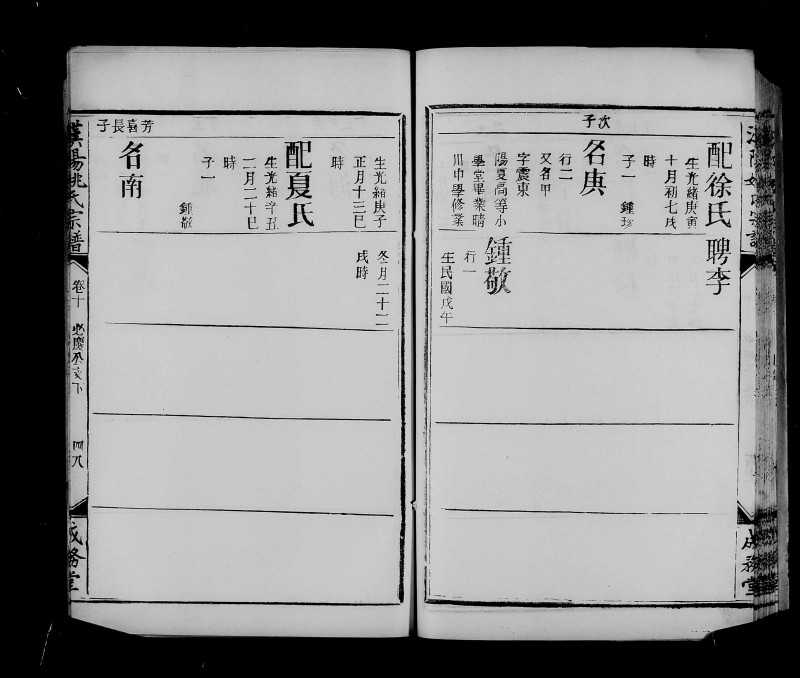 次子
配徐氏
生光緒庚寅
十月初七戌
時
子一 鍾珍
名庚
行二
又名甲
字震東
陽夏高等小
學堂畢業晴
川中學修業
聘李
鍾敬
行一
生民國戊午
芳喜長子
生光緒庚子
正月十三巳
時
配夏氏
生光緒辛丑
二月二十巳
時
子一
鍾敬
名南
冬月二十二
戌時
漢陽姚氏宗譜
卷十
四八
成務堂
成務堂